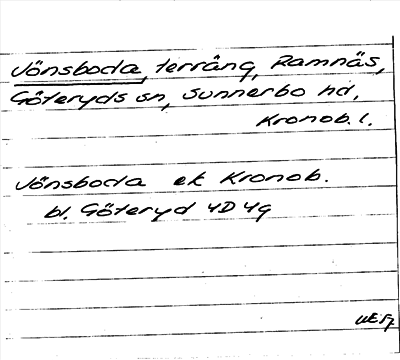 Jönsboda, terräng, Ramnäs,
Göteryds sn, Sunnerbo hd,
Kronob. l.
Jönsboda ek Kronob.
bl. Göteryd 4D 4g